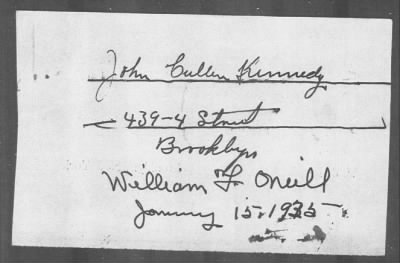 John Cullen Kennedy
439-4 Street
Brooklyn
William F. Oneill
January 15, 1935